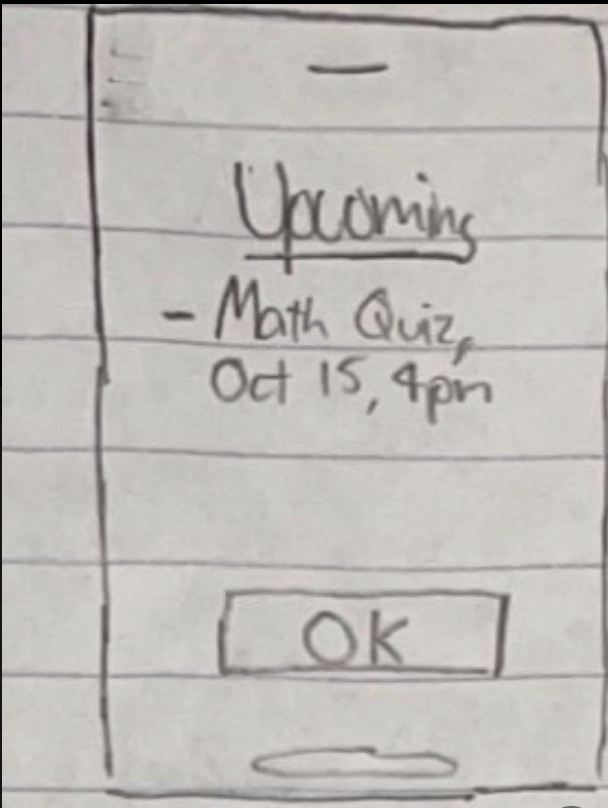 Upcoming
- Math Quiz,
Oct 15, 4pm
OK